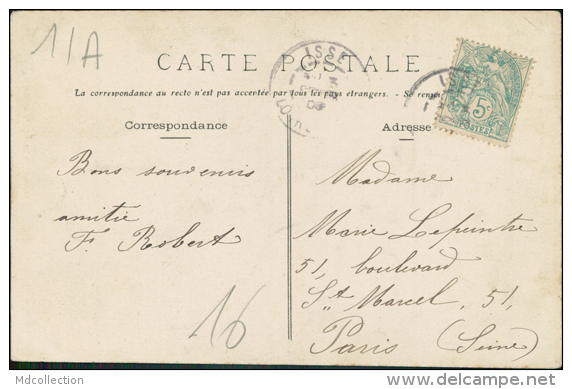 11A
CARTE POSTALE
La correspondance au recto n'est pas acceptée par tous les pays étrangers. - Se renseigner
Correspondance
Bons souvenirs
amitié
F. Robert
16
Adresse
Madame
Marie Lepeintre
51, boulevard
St Marcel, 51,
Paris (Seine)
ISSÉ
5c
POSTES
Mdcollection
www.delcampe.net